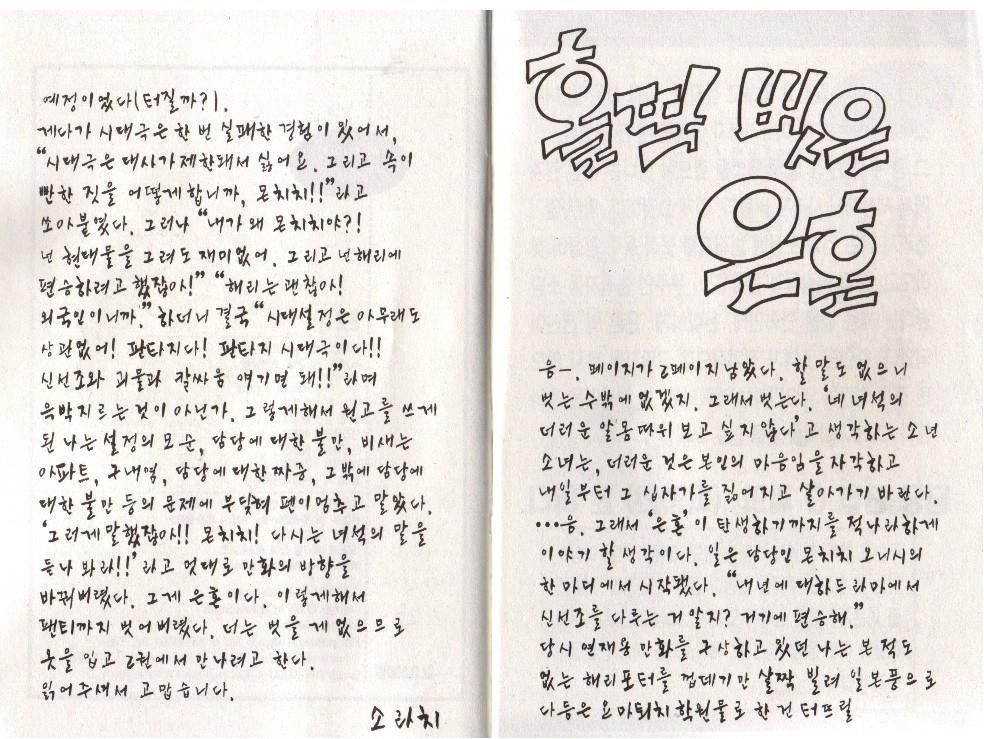 홀딱 벗은
은혼
음-. 페이지가 2페이지 남았다. 할 말도 없으니
벗는 수밖에 없겠지. 그래서 벗는다. '네 녀석의
더러운 알몸따위 보고 싶지 않다'고 생각하는 소년
소녀는, 더러운 것은 본인의 마음임을 자각하고
내일부터 그 십자가를 짊어지고 살아가기 바란다.
…음. 그래서 '은혼'이 탄생하기까지를 적나라하게
이야기 할 생각이다. 일은 담당인 몬치치 오니시의
한 마디에서 시작됐다. "내년에 대하드라마에서
신선조를 다루는 거 알지? 거기에 편승해."
당시 연재용 만화를 구상하고 있던 나는 본 적도
없는 해리포터를 껍데기만 살짝 빌려 일본풍으로
다듬은 요마퇴치 학원물로 한 건 터뜨릴
예정이었다(터질까?).
게다가 시대극은 한 번 실패한 경험이 있어서,
"시대극은 대사가 제한돼서 싫어요. 그리고 속이
빤한 짓을 어떻게 합니까, 몬치치!!"라고
쏘아붙였다. 그러나 "내가 왜 몬치치야?!
넌 현대물을 그려도 재미없어. 그리고 넌 해리에
편승하려고 했잖아!" "해리는 괜찮아!
외국인이니까." 하더니 결국 "시대설정은 아무래도
상관없어! 판타지다! 판타지 시대극이다!!
신선조와 괴물과 칼싸움 얘기면 돼!!"라며
윽박지르는 것이 아닌가. 그렇게해서 원고를 쓰게
된 나는 설정의 모순, 담당에 대한 불만, 비새는
아파트, 구내염, 담당에 대한 짜증, 그밖에 담당에
대한 불만 등의 문제에 부딪혀 펜이 멈추고 말았다.
'그러게 말했잖아!! 몬치치! 다시는 녀석의 말을
듣나 봐라!!'라고 멋대로 만화의 방향을
바꿔버렸다. 그게 은혼이다. 이렇게해서
팬티까지 벗어버렸다. 더는 벗을 게 없으므로
옷을 입고 2권에서 만나려고 한다.
읽어주셔서 고맙습니다.
소라치